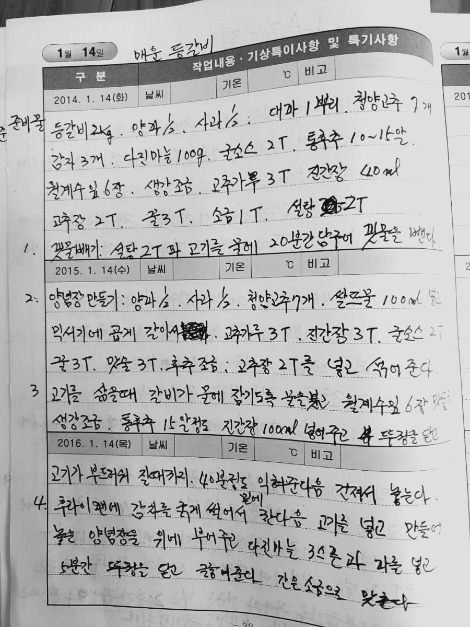 매운 등갈비
1월 14일 작업내용 · 기상특이사항 및 특기사항
1월
구 분
2014. 1. 14(화) 날씨 기온 ℃ 비고
201
준비물 등갈비 2kg. 양파 ½. 사과 ½. 대파 1뿌리. 청양고추 7개
감자 3개. 다진마늘 100g. 굴소스 2T. 통후추 10~15알.
월계수잎 6장. 생강조금. 고추가루 3T 진간장 40ml
고추장 2T. 꿀 3T. 소금 1T. 설탕 2T
1. 핏물빼기: 설탕 2T 와 고기를 물에 20분간 담구어 핏물을 뺀다
2015. 1. 14(수) 날씨 기온 ℃ 비고
2. 양념장 만들기: 양파 ½. 사과 ½. 청양고추 7개. 쌀뜨물 100ml 넣고
믹서기에 곱게 갈아서 고추가루 3T. 진간장 3T. 굴소스 2T
꿀 3T. 맛술 3T. 후추조금. 고추장 2T를 넣고 섞어준다
3 고기를 삶을때 갈비가 물에 잠기도록 물을 붓고 월계수잎 6장
생강조금. 통후추 15알정도 진간장 100ml 넣어주고 뚜껑을 닫고
2016. 1. 14(목) 날씨 기온 ℃ 비고
고기가 부드러워 질때까지. 40분정도 익혀준다음 건져서 놓는다.
4. 후라이팬에 감자를 굵게 썰어서 깐다음 고기를 넣고 만들어
놓은 양념장을 위에 부어주고 다진마늘 3스푼과 파를 넣고
5분간 뚜껑을 닫고 끓여준다 간은 소금으로 맞춘다